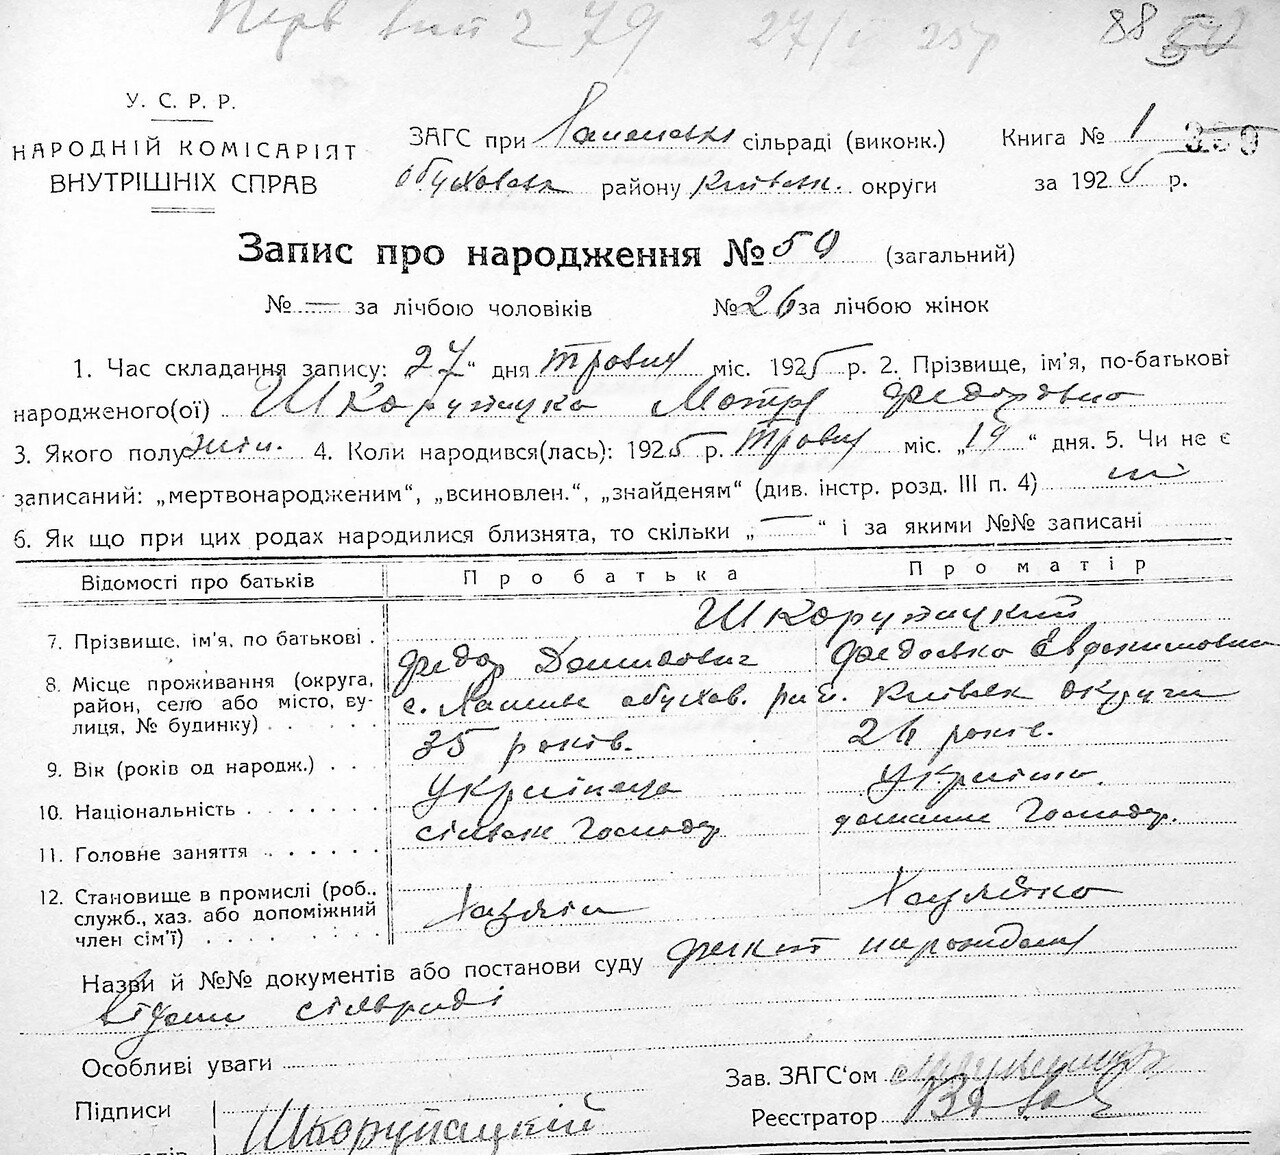 Перв вип 2 79 27/ 25р 88
У. С. Р. Р.
НАРОДНІЙ КОМІСАРІЯТ
ВНУТРІШНІХ СПРАВ
ЗАГС при сільраді (виконк.)
Обуховськ району Київськ. округи
Книга № 1
за 1925 р.
Запис про народження № 59 (загальний)
№ — за лічбою чоловіків № 26 за лічбою жінок
1. Час складання запису: 27 “ дня травня міс. 1925 р. 2. Прізвище, ім’я, по-батькові
народженого(ої) Шкорупацка Мотря Федорівна
3. Якого полу жін. 4. Коли народився(лась): 1925 р. травня міс. „19 “ дня. 5. Чи не є
записаний: „мертвонародженим“, „всиновлен.“, „знайденям“ (див. інстр. розд. III п. 4) ні
6. Як що при цих родах народилися близнята, то скільки „ — “ і за якими №№ записані
Відомості про батьків Про батька Про матір
7. Прізвище, ім’я, по батькові . Шкорупацкий
Федор Данилович Федоська Евфимовна
8. Місце проживання (округа,
район, село або місто, ву-
лиця, № будинку) . . . .
с. обухов. рай. Київськ округи
9. Вік (років од народж.) . . . 35 років. 26 років.
10. Національність . . . . . . Українець Українка
11. Головне заняття . . . . . . сільськ господар домашн господар.
12. Становище в промислі (роб.,
служб., хаз. або допоміжний
член сім’ї) . . . . . . . . Хазяїн Хазяйка
Назви й №№ документів або постанови суду факт народження
відом сільраді
Особливі уваги
Зав. ЗАГС‘ом
Підписи Шкорупацкій
Реєстратор